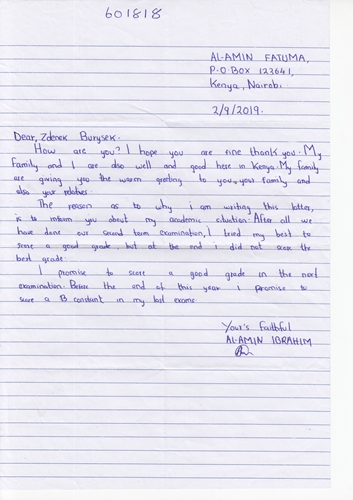 601818
AL-AMIN FATUMA,
P.O BOX 123641,
Kenya, Nairobi
2/9/2019.
Dear, Zdenek Burysek.
How are you? I hope you are fine thank you. My
family and I are also well and good here in Kenya. My family
are giving you the warm greeting to you, your family and
also your relatives.
The reason as to why i am writing this letter,
is to inform you about my academic situation. After all we
have done our second term examination, I tried my best to
score a good grade, but at the end i did not score the
best grade.
I promise to score a good grade in the next
examination. Before the end of this year I promise to
score a B constant in my last exams.
Your's faithful
AL-AMIN IBRAHIM